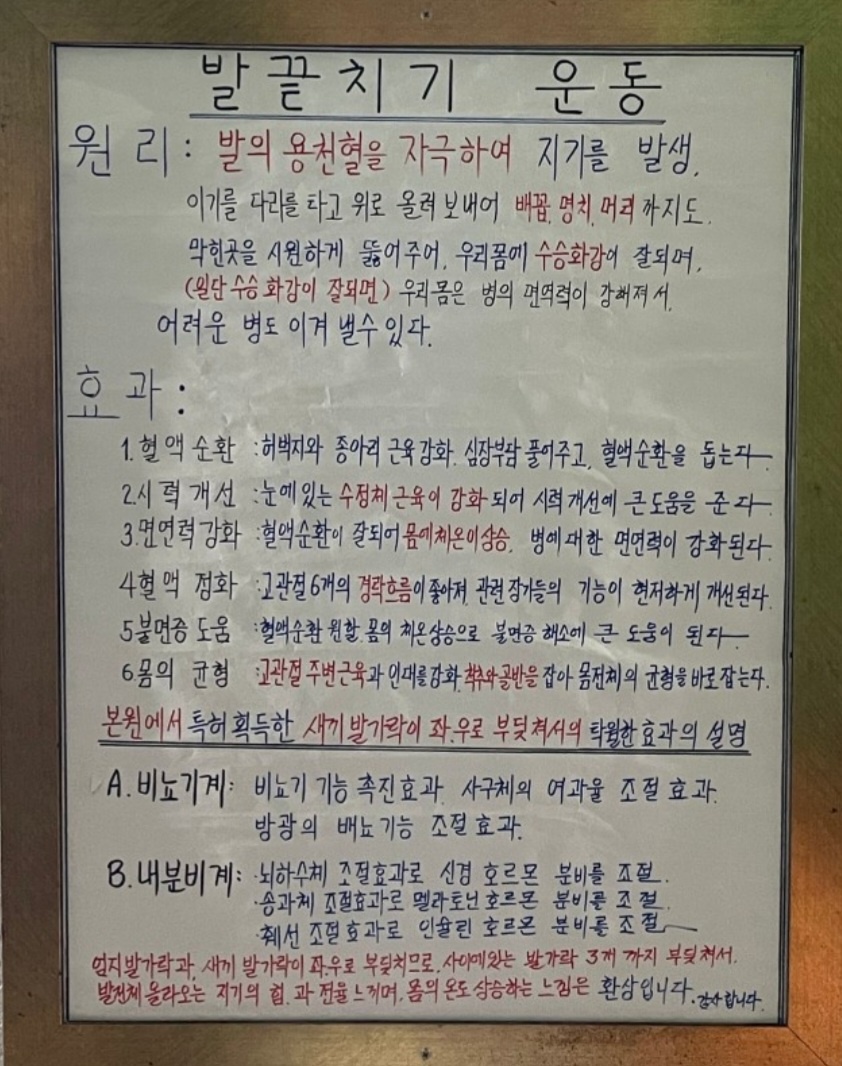 발끝치기 운동
원리: 발의 용천혈을 자극하여 지기를 발생.
이기를 다리를 타고 위로 올려 보내어 배꼽, 명치, 머리 까지도.
막힌곳을 시원하게 뚫어주어, 우리몸에 수승화강이 잘되며,
(일단 수승 화강이 잘되면) 우리몸은 병의 면역력이 강해져서,
어려운 병도 이겨 낼수있다.
효과:
1. 혈액순환 : 허벅지와 종아리 근육강화. 심장부담 풀어주고, 혈액순환을 돕는다.
2. 시력개선 : 눈에있는 수정체근육이 강화되어 시력개선에 큰도움을 준다.
3. 면연력강화 : 혈액순환이 잘되어 몸에체온이상승, 병에대한 면연력이 강화된다.
4 혈액 정화 : 고관절6개의 경락흐름이좋아져, 관련장기들의 기능이 현저하게 개선된다.
5 불면증 도움 : 혈액순환 원활. 몸의 체온상승으로 불면증 해소에 큰 도움이 된다.
6. 몸의 균형 : 고관절 주변근육과 인대를강화. 척추와골반을 잡아 몸전체의 균형을바로잡는다.
본원에서 특허획득한 새끼발가락이 좌.우로 부딪쳐서의 탁월한효과의 설명
A. 비뇨기계: 비뇨기 기능 촉진효과. 사구체의 여과율 조절 효과.
방광의 배뇨기능 조절효과.
B. 내분비계: ·뇌하수체 조절효과로 신경 호르몬 분비를 조절.
·송과체 조절효과로 멜라토닌호르몬 분비를 조절.
·췌선 조절효과로 인슐린 호르몬 분비를 조절
엄지발가락과, 새끼 발가락이 좌.우로 부딪치므로, 사이에있는 발가락 3개 까지 부딪쳐서.
발전체 올라오는 지기의 힘.과 전율느끼며, 몸의온도상승하는 느낌은 환상입니다. 감사합니다.